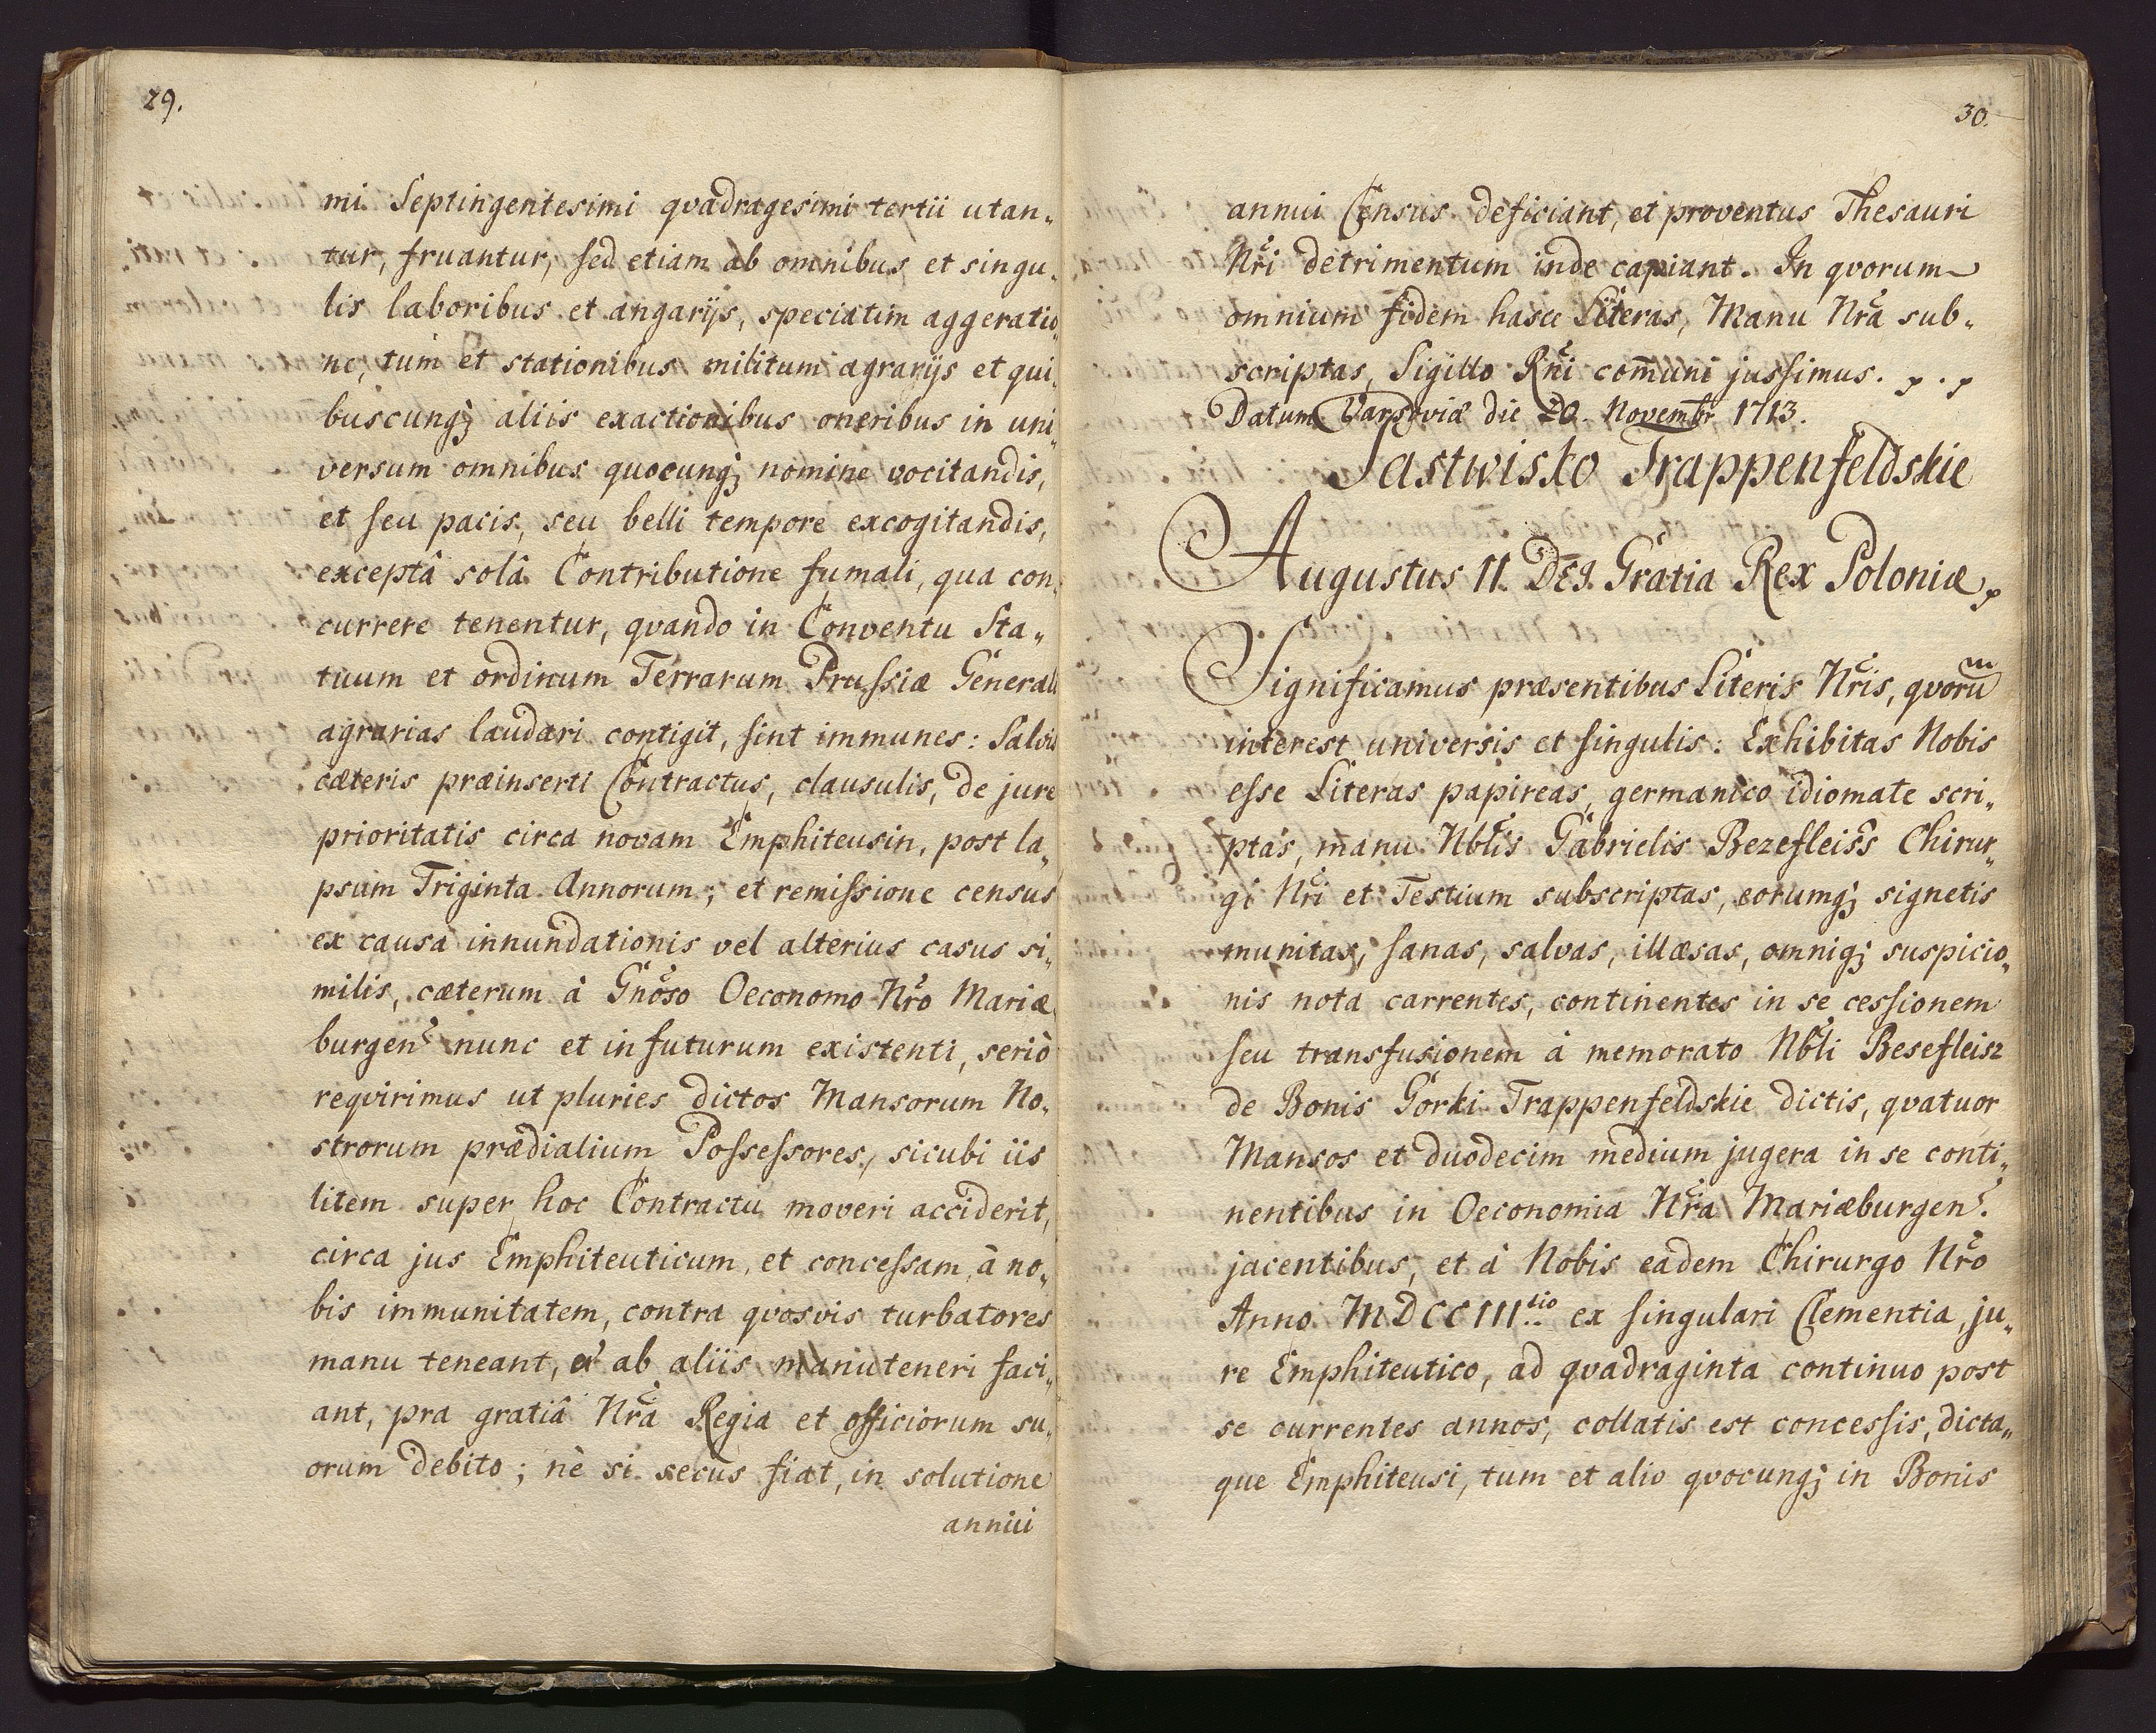 29.
mi Septingentesimi qvadragesimi tertii utan„
tur, fruantur, sed etiam ab omnibus et singu„
lis laboribus et angarijs, speciatim aggeratio„
ne, tum et stationibus militum agrarijs et qui„
buscunq; aliis exactionibus oneribus in uni„
versum omnibus quocunq; nomine vocitandis,
et seu pacis, seu belli tempore excogitandis,
exceptâ solâ Contributione fumali, qua con„
currere tenentur, qvando in Conventu Sta„
tuum et ordinum Terrarum Prussiæ Generali
agrarias laudari contigit, sint immunes: Salvis
cæteris præinserti Contractus, clausulis, de jure
prioritatis circa novam Emphiteusin, post la„
psum Triginta Annorum; et remissione census
ex causa innundationis vel alterius casus si„
milis, cæterum à Gnoso Oeconomo Nro Mariæ„
burgen nunc et in futurum existenti, seriò
reqvirimus ut pluries dictos Mansorum No„
strorum prædialium Possessores, sicubi iis
litem super hoc Contractu moveri acciderit,
circa jus Emphiteuticum, et concessam à no„
bis immunitatem, contra qvosvis turbatores
manu teneant, et ab aliis manuteneri faci„
ant, pra gratiâ Nra Regia et officiorum su„
orum debito; nè si secus fiat, in solutione
annui
30.
annui Census deficiant, et proventus Thesauri
Nri detrimentum inde capiant. In qvorum
omnium fidem hasce Literas, Manu Nra sub„
scriptas, Sigillo Rni com̄uni jussimus.
Datum Varsoviæ die 20. Novembr 1713.
Pastwisko Trappenfeldskie
Augustus II. DEI. Gratia Rex Poloniæ
Significamus præsentibus Literis Nris, qvorūm
interest universis et singulis: Exhibitas Nobis
esse Literas papireas, germanico idiomate scri„
ptas, manu Nblis Gabrielis Bezefleiss Chirur„
gi Nri et Testium subscriptas, eorumq; signetis
munitas, sanas, salvas, illæsas, omniq; suspicio„
nis nota carrentes, continentes in se cessionem
seu transfusionem à memorato Nbli Besefleisz
de Bonis Gorki Trappenfeldskie dictis, qvatuor
Mansos et duodecim medium jugera in se conti„
nentibus in Oeconomia Nra Mariæburgen.
jacentibus, et à Nobis eadem Chirurgo Nro
Anno MDCCIIItio ex singulari Clementia, ju„
re Emphiteutico, ad qvadraginta continuo post
se currentes annos, collatis est concessis, dicta„
que Emphiteusi, tum et alio qvocunq; in Bonis